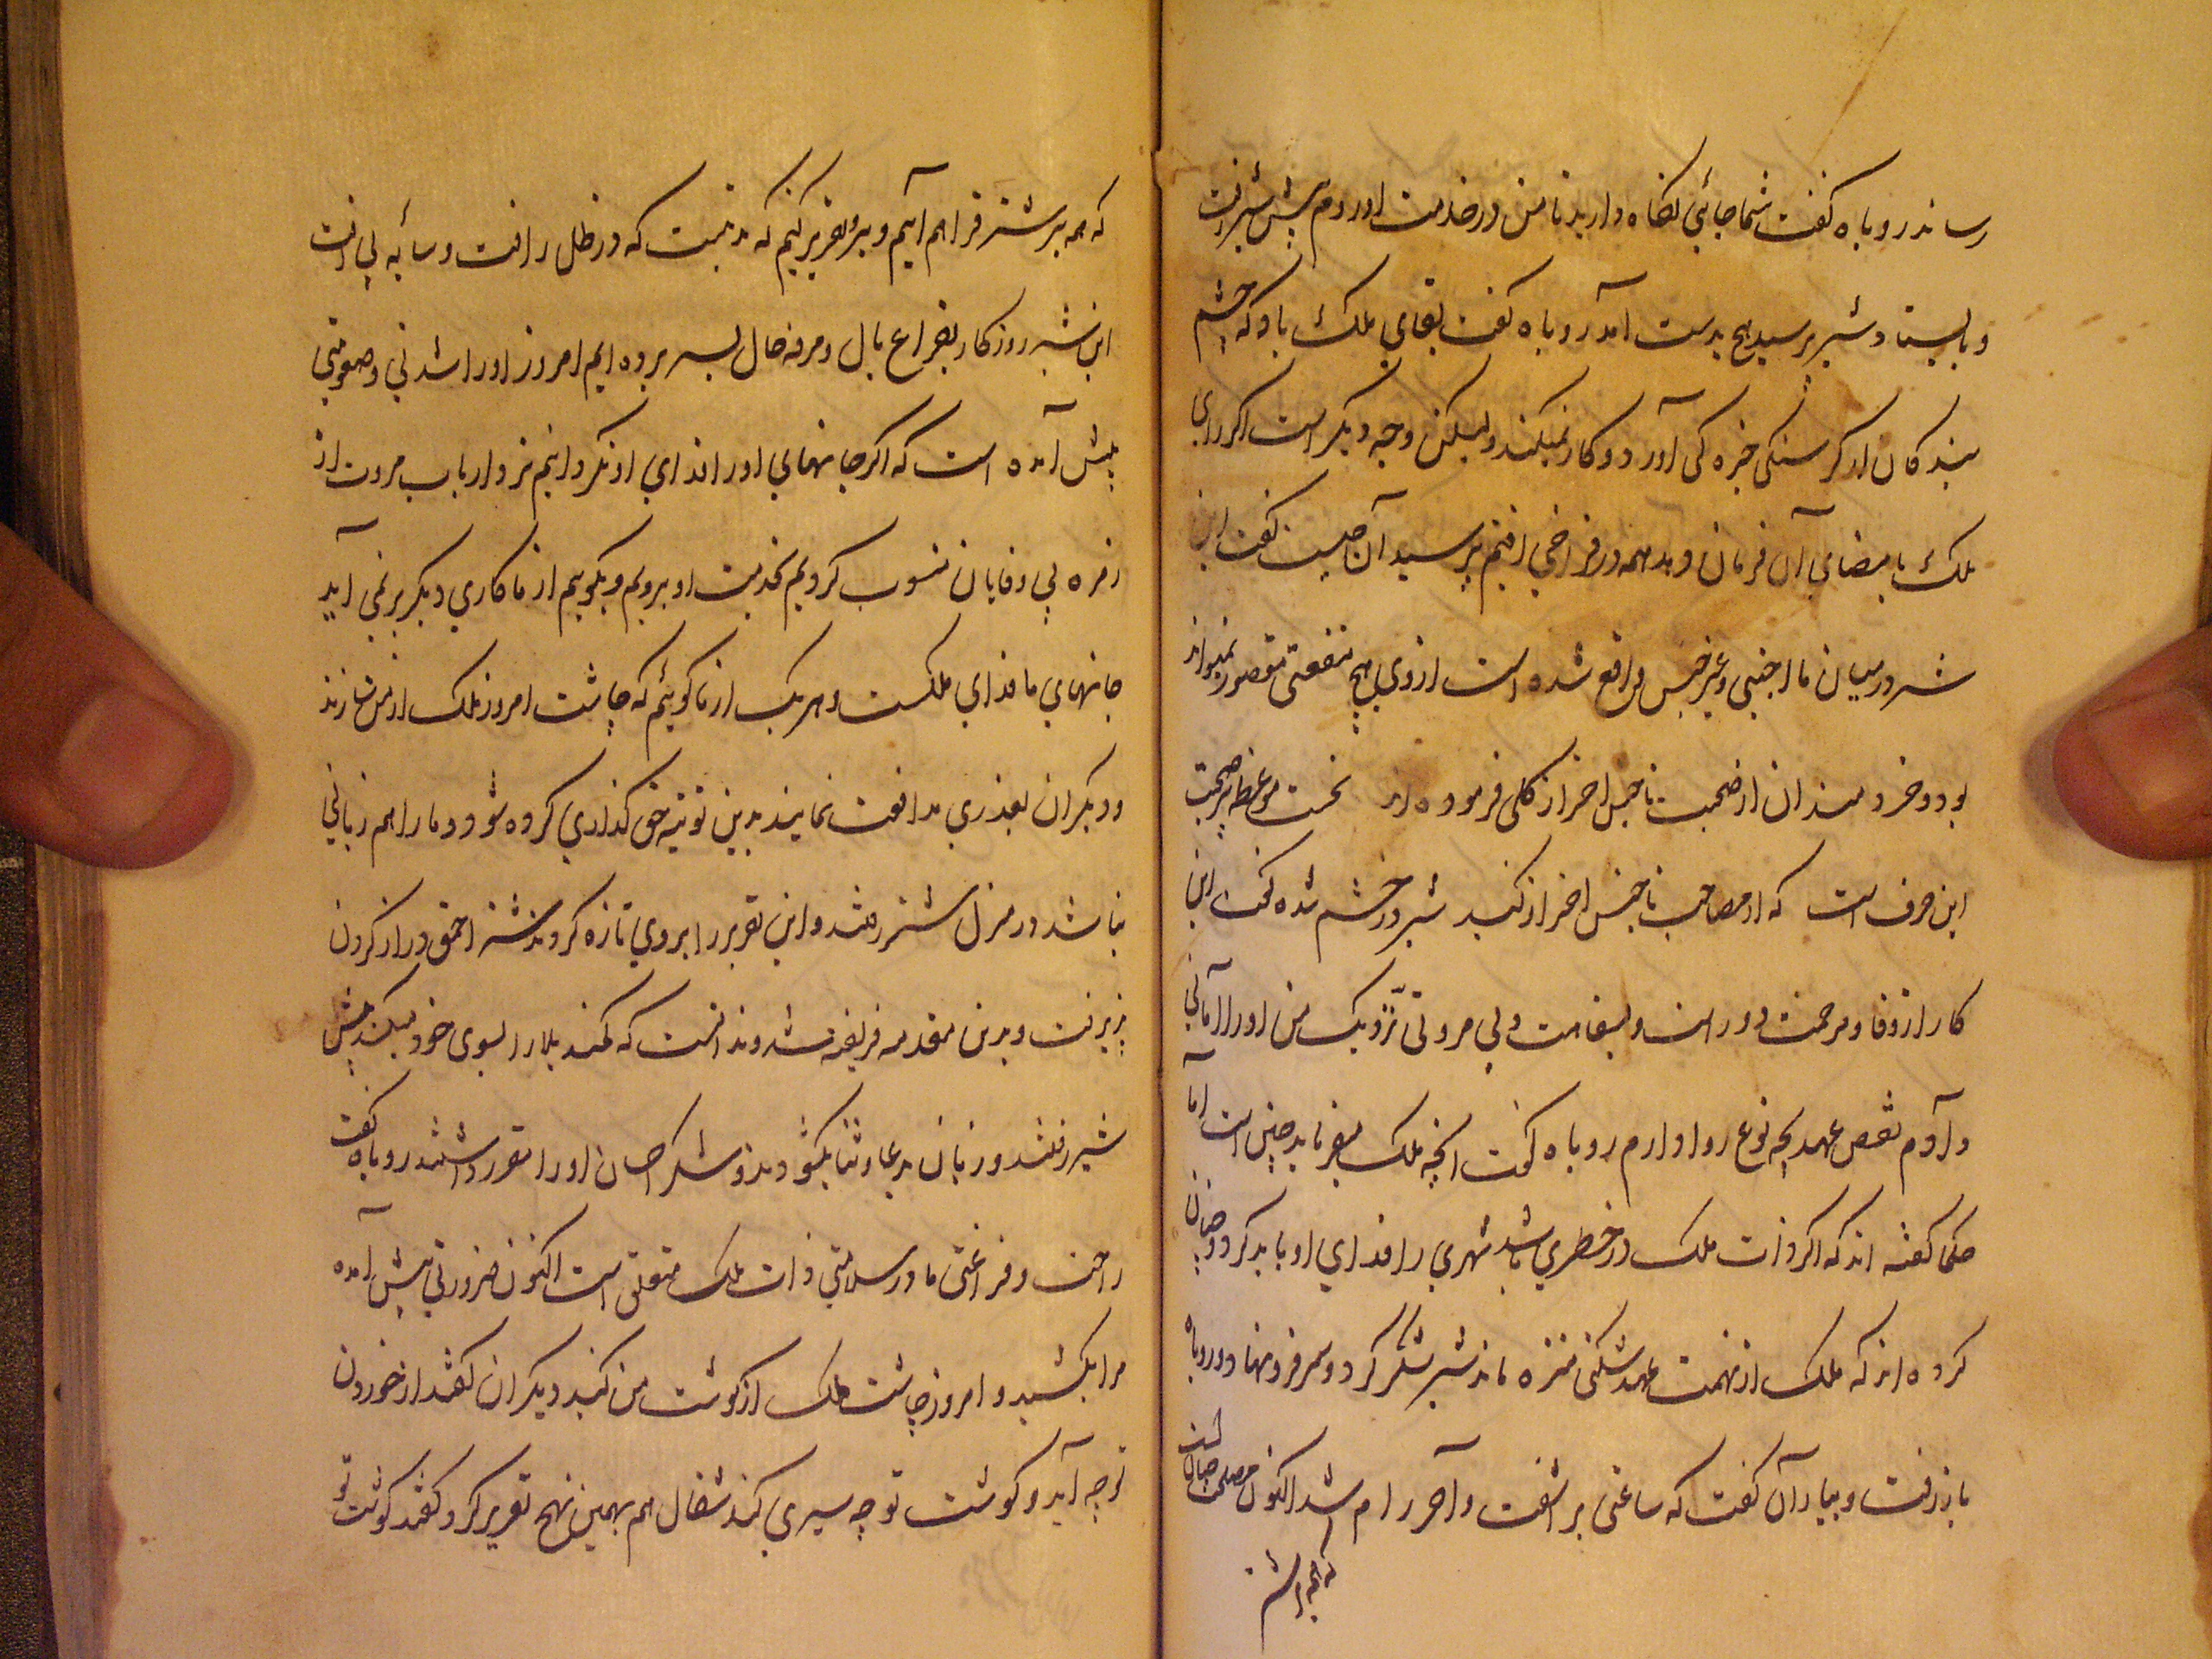 رساند روباه گفت شما جائی نگاه دارید تا من در خدمت او روم پیش شیر رفت
و بایستاد شیر پرسید هیچ بدست آمد روباه گفت بقای ملک باد که چشم
بندکان از کرسنکی خیره کی آورد و کار نمیکند ولیکن وجه دیکر است اکر رای
ملک بامضای آن فرمان دهد همه در فراخی افتیم پرسید آن چیست گفت این
شتر در میان ما اجنبی و غیر جنس واقع شده است از وی هیچ منفعتی متصور نمیتواند
بود و خردمندان از صحبت ناجنس احتراز کلی فرموده اند نخست موعظه پیر صحبت
این حرف است که از مصاحب ناجنس احتراز کنید شیر در خشم شده گفت این
کار از وفا و مرحمت دور است و بی مروتی نزدیک من او را امانی
دادم نقض عهد بچه نوع روا دارم روباه گفت انچه ملک میفرماید چنین است اما
حکما گفته اند که اکر ذات ملک در خطری باشد شهری را فدای او باید کرد و چنان
کرده اند که ملک از تهمت عهد شکنی منزه ماند شیر شکر کرد و سر فرو نهاد و روباه
باز رفت و بیاران گفت که ساعتی بر اشفت و آخر رام شد اکنون مصلحت چنان است
که همه بر شتر
که همه بر شتر فراهم آییم و برو تقریر کنیم که مدتیست که در ظل رافت و سایه بی افت
این شیر روزکار بفراغ بال و مرفه حال بسر برده ایم امروز او را شدتی و صعوبتی
پیش آمده است که اکر جانهای او را فدای او نکردانیم نزد ارباب مروت از
زمره بی وفایان منسوب کردیم بخدمت او برویم و بکوییم از ما کاری دیکر بر نمی آید
جانهای ما فدای ملکست و هر یک از ما کوئیم که چاشت امروز ملک از من سازند
و دیکران بعذری مدافعت نمایند بدین توتیه حق کذاری کرده شود و ما را هم زیانی
نباشد در منزل شتر رفتند و این تقریر را بروی تازه کردند شتر احمق دراز کردن
پذیرفت و بدین مقدمه فریفته شد و ندانست که کمند بلا را بسوی خود میکشد پیش
شیر رفتند و زبان بدعا و ثنا بکشودند و شکر احسان او را مقرر داشتند روباه گفت
راحت و فراغتی ما در سلامتی ذات ملک متعلق است اکنون ضرورتی پیش آمده
مرا بکشید و امروز چاشت ملک از کوشت من کنید دیکران گفتند از خوردن
تو چه آید و کوشت تو چه سیری کند شغال هم بهمین نهج تقریر کرد گفتند کوشت تو